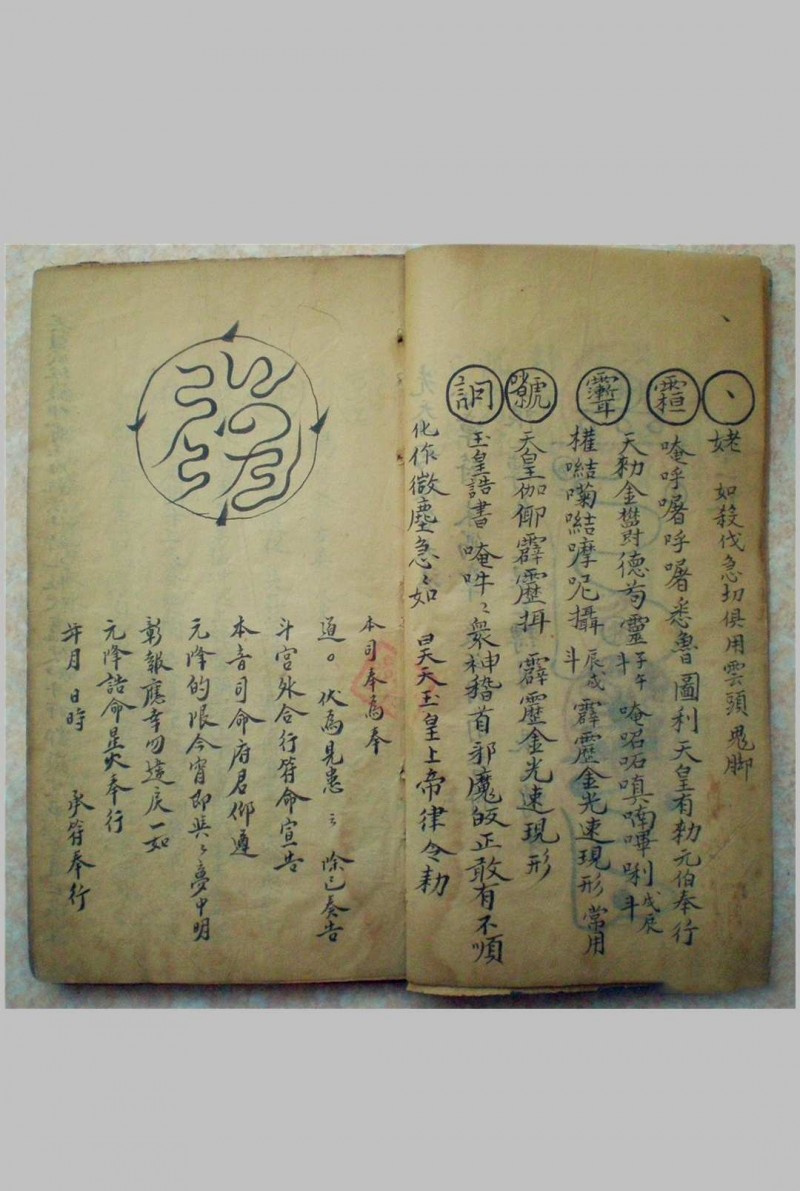 如殺伐急切俱用雲頭鬼脚
姥
唵呼囑呼囑悉魯圖利天皇有勑元伯奉行
天勑金 對德芶靈 子午斗 唵 嗔喃 唎 戌辰斗
權 摩呢攝 辰戌斗 霹靂金光速現形 常用
天皇伽 霹靂 霹靂金光速現形
玉皇誥書 唵吽〻衆神稽首邪魔皈正敢有不順
化作微塵急〻如 昊天玉皇上帝律令勑
本司奉爲奉
道。伏爲見患〻 除已奏告
斗宮外合行符命宣告
本音司命府君仰遵
元降的限今宵即與〻夢中明
彰報應幸勿違戾一如
元降誥命星火奉行
年月日時 承符奉行